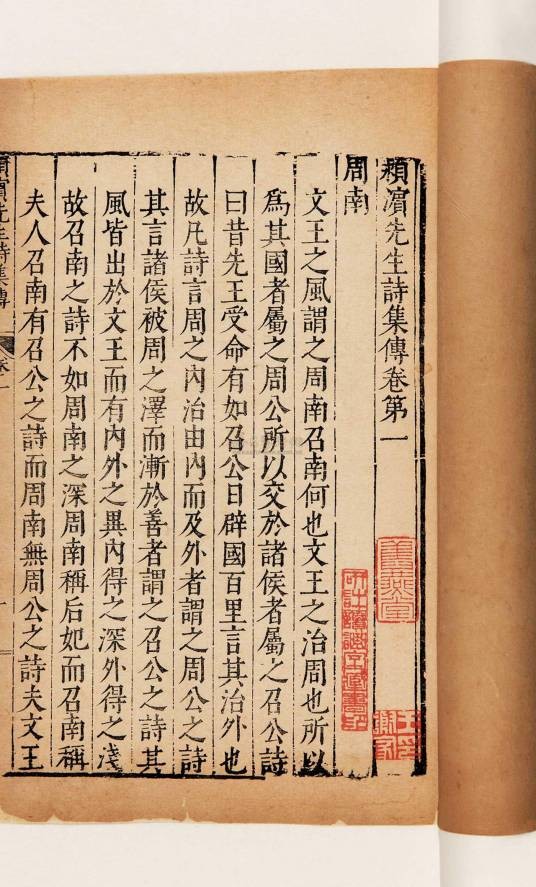 潁濵先生詩集傳卷第一
周南
文王之風謂之周南召南何也文王之治周也所以
爲其國者屬之周公所以交於諸侯者屬之召公詩
曰昔先王受命有如召公日辟國百里言其治外也
故凡詩言周之內治由內而及外者謂之周公之詩
其言諸侯被周之澤而漸於善者謂之召公之詩其
風皆出於文王而有內外之異內得之深外得之淺
故召南之詩不如周南之深周南稱后妃而召南稱
夫人召南有召公之詩而周南無周公之詩夫文王